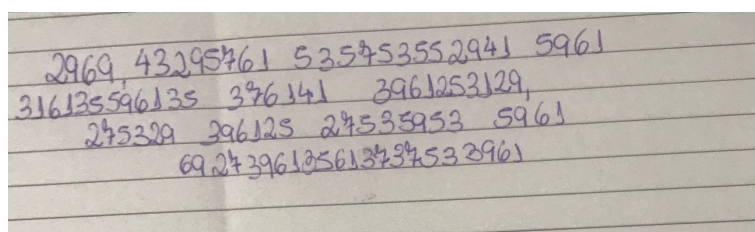 2969, 43295761 535753552941 5961
316135596135 376141 3961253129,
275329 396125 27535953 5961
692739613561373753 3961